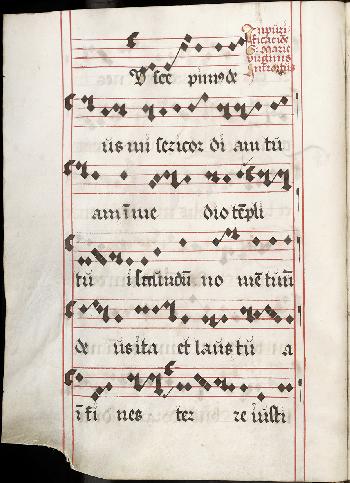 In puri
ficacioe
S. Marie
virginis
Introitus
Uscepimus de
us mi sericor di am tu
am i me dio tepli
tu i secundu no me tuu
de us ita et laus tu a
i fi nes ter re iusti